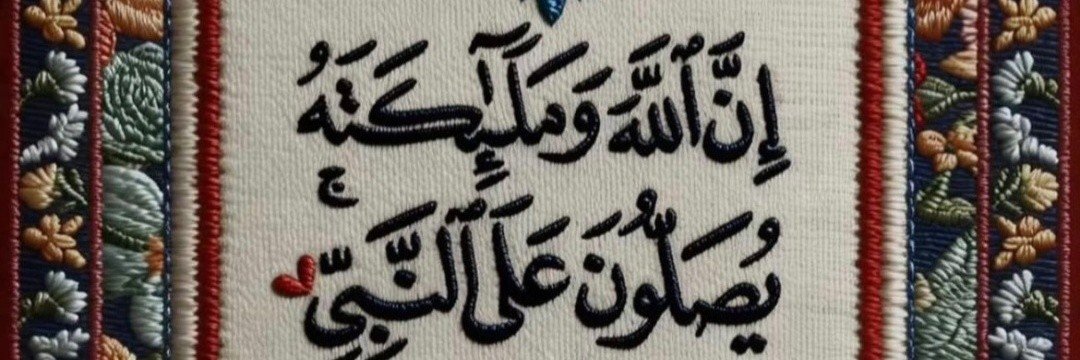 إِنَّ ٱللَّهَ وَمَلَٰٓئِكَتَهُ
يُصَلُّونَ عَلَى ٱلنَّبِيِّ ۚ